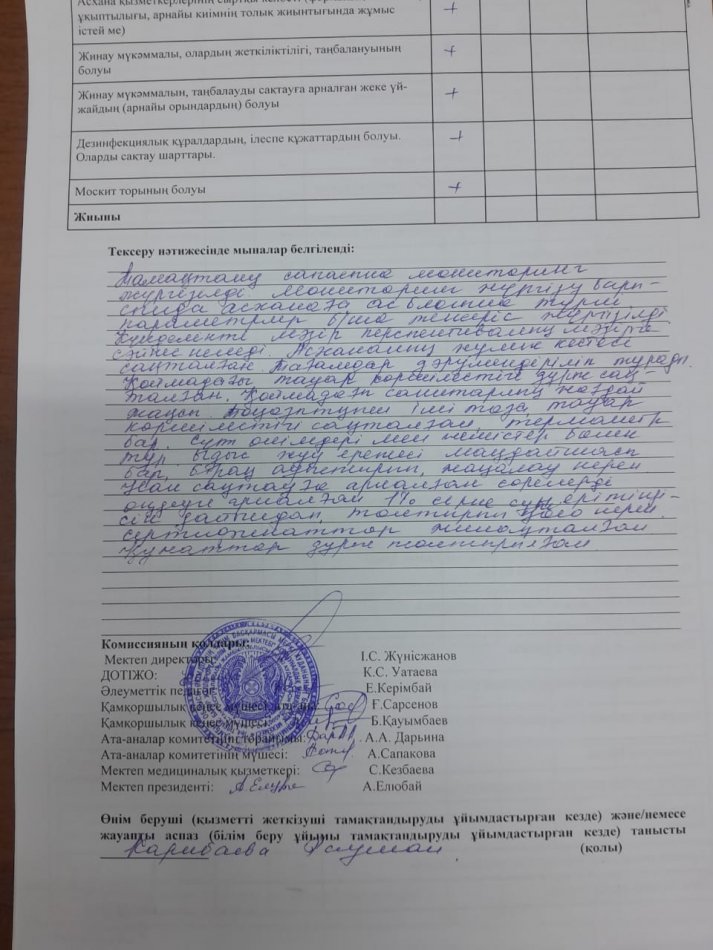 Асхана қызметкерлерінің сыртқы келбеті
ұқыптылығы, арнайы киімнің толық жиынтығында жұмыс
істей ме) +
Жинау мүкәммалы, олардың жеткіліктілігі, таңбалануының
болуы +
Жинау мүкәммалын, таңбалауды сақтауға арналған жеке үй-
жайдың (арнайы орындардың) болуы +
Дезинфекциялық құралдардың, ілеспе құжаттардың болуы.
Оларды сақтау шарттары. +
Москит торының болуы +
Жиыны
Тексеру нәтижесінде мыналар белгіленді:
Тамақтану сапасына мониторинг
жүргізілді Мониторинг жүргізу бары-
сында асханаға асблокта түрлі
параметрлер б/ша тексеріс жүргізілді
Күнделікті мәзір перспективалық мәзірге
сәйкес келеді. Асхананың жұмыс кестесі
сақталған Тағамдар дәрумендеріліп тұрады.
Қоймадағы тауар көршілестігі дұрыс сақ-
талған. Қоймадағы санитарлық жағдай
жақсы. Тоңазытқыш іші таза, тауар
көршілестігі сақталған, термометр
бар. Сүт өнімдері мен жемістер
тұр. Ыдыс жуу ережесі маңдайшасы
бар, бірақ ауыстырып, жаңалау керек
Нан сақтауға арналған сөрелерді
өңдеуге арналған 1% сірке суы ерітінді-
сін дайындап, толтырып қою керек
сертификаттар
құжаттар дұрыс толтырылған
Комиссияның қолдары:
Мектеп директоры І.С. Жүнісжанов
ДОТІЖО: К.С. Уатаева
Әлеуметтік педагог Е.Керімбай
Қамқоршылық кеңес мүшесі Ғ.Сарсенов
Қамқоршылық кеңес мүшесі Б.Қауымбаев
Ата-аналар комитетінің төрайымы: А.А. Дарьина
Ата-аналар комитетінің мүшесі: А.Сапакова
Мектеп медициналық қызметкері: С.Кезбаева
Мектеп президенті: А.Елюбай
Өнім беруші (қызметті жеткізуші тамақтандыруды ұйымдастырған кезде) және/немесе
жауапты аспаз (білім беру ұйымы тамақтандыруды ұйымдастырған кезде) танысты
Карибаева (қолы)